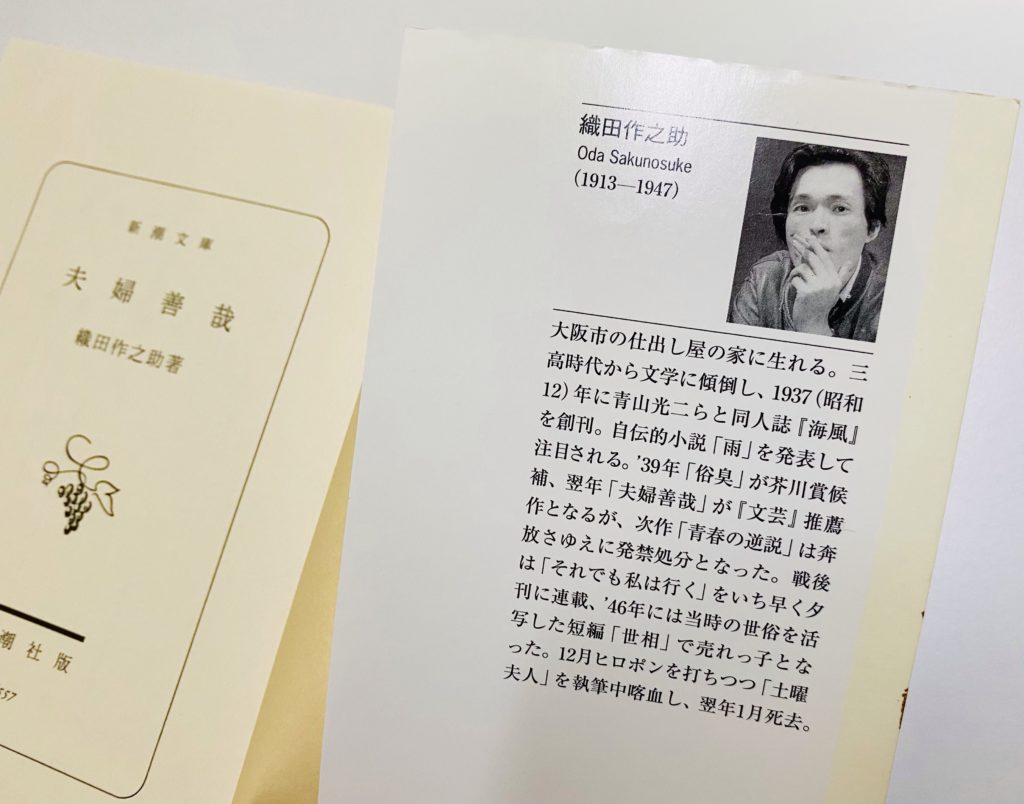 新潮文庫
夫婦善哉
織田作之助著
潮社版
557
織田作之助
Oda Sakunosuke
(1913—1947)
大阪市の仕出し屋の家に生れる。三
高時代から文学に傾倒し、1937(昭和
12)年に青山光二らと同人誌『海風』
を創刊。自伝的小説「雨」を発表して
注目される。’39年「俗臭」が芥川賞候
補、翌年「夫婦善哉」が『文芸』推薦
作となるが、次作「青春の逆説」は奔
放さゆえに発禁処分となった。戦後
は「それでも私は行く」をいち早く夕
刊に連載、’46年には当時の世俗を活
写した短編「世相」で売れっ子とな
った。12月ヒロポンを打ちつつ「土曜
夫人」を執筆中喀血し、翌年1月死去。